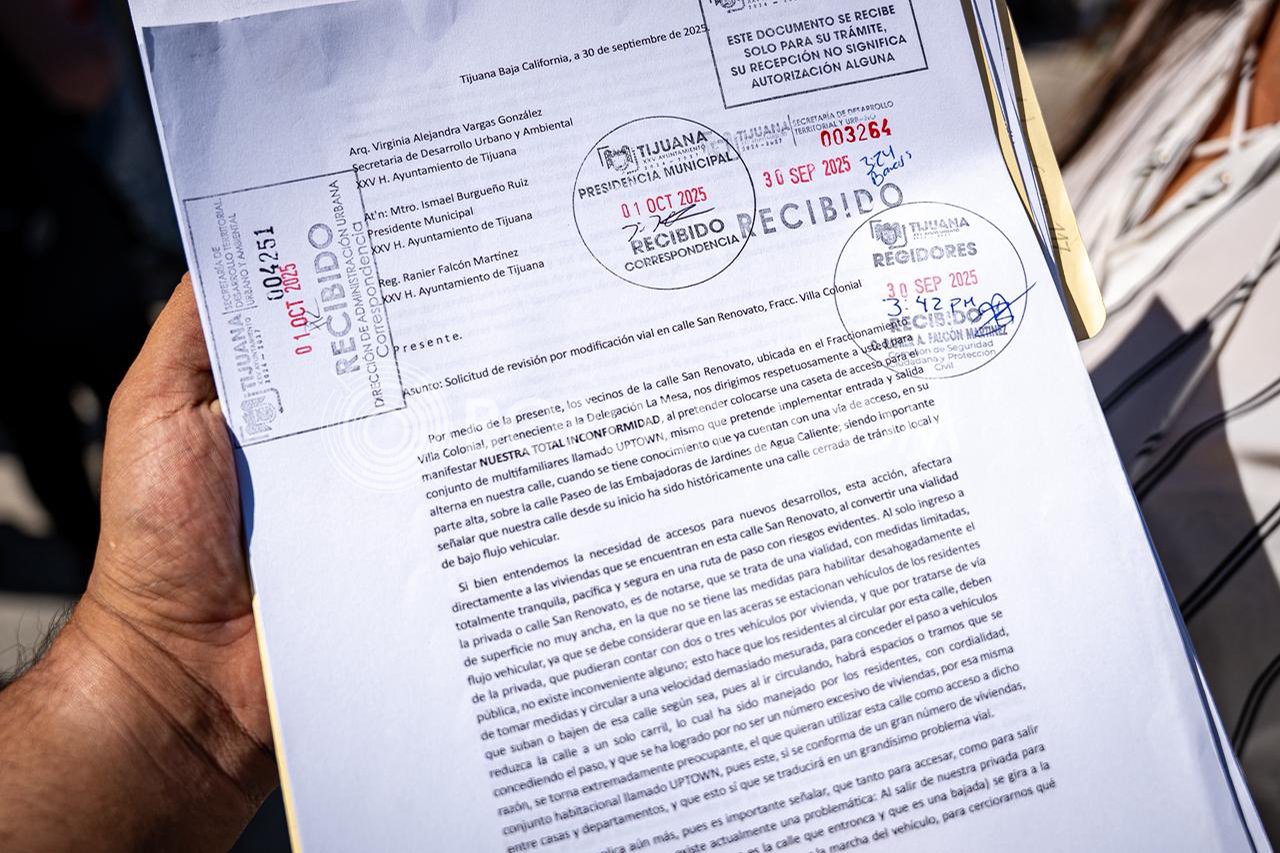 Tijuana Baja California, a 30 de septiembre de 2025
ESTE DOCUMENTO SE RECIBE
SOLO PARA SU TRÁMITE,
SU RECEPCIÓN NO SIGNIFICA
AUTORIZACIÓN ALGUNA
Arq. Virginia Alejandra Vargas González
Secretaria de Desarrollo Urbano y Ambiental
XXV H. Ayuntamiento de Tijuana
At'n: Mtro. Ismael Burgueño Ruiz
Presidente Municipal
XXV H. Ayuntamiento de Tijuana
Reg. Ranier Falcón Martínez
XXV H. Ayuntamiento de Tijuana
Presente.
TIJUANA
XXV AYUNTAMIENTO
2024 - 2027
PRESIDENCIA MUNICIPAL
01 OCT 2025
RECIBIDO
CORRESPONDENCIA
TIJUANA
SECRETARÍA DE DESARROLLO
TERRITORIAL Y URBANO
003264
30 SEP 2025
3:24
RECIBIDO
TIJUANA
REGIDORES
30 SEP 2025
3:42 PM
RECIBIDO
FALCÓN MARTÍNEZ
Comisión de Seguridad
Ciudadana y Protección
Civil
TIJUANA
2024 - 2027
SECRETARÍA DE
DESARROLLO TERRITORIAL
URBANO Y AMBIENTAL
004251
01 OCT 2025
RECIBIDO
DIRECCIÓN DE ADMINISTRACIÓN URBANA
Correspondencia
Asunto: Solicitud de revisión por modificación vial en calle San Renovato, Fracc. Villa Colonial
Por medio de la presente, los vecinos de la calle San Renovato, ubicada en el Fraccionamiento
Villa Colonial, perteneciente a la Delegación La Mesa, nos dirigimos respetuosamente a usted para
manifestar NUESTRA TOTAL INCONFORMIDAD, al pretender colocarse una caseta de acceso para el
conjunto de multifamiliares llamado UPTOWN, mismo que pretende implementar entrada y salida
alterna en nuestra calle, cuando se tiene conocimiento que ya cuentan con una vía de acceso, en su
parte alta, sobre la calle Paseo de las Embajadoras de Jardines de Agua Caliente; siendo importante
señalar que nuestra calle desde su inicio ha sido históricamente una calle cerrada de tránsito local y
de bajo flujo vehicular.
Si bien entendemos la necesidad de accesos para nuevos desarrollos, esta acción, afectara
directamente a las viviendas que se encuentran en esta calle San Renovato, al convertir una vialidad
totalmente tranquila, pacífica y segura en una ruta de paso con riesgos evidentes. Al solo ingreso a
la privada o calle San Renovato, es de notarse, que se trata de una vialidad, con medidas limitadas,
de superficie no muy ancha, en la que no se tiene las medidas para habilitar desahogadamente el
flujo vehicular, ya que se debe considerar que en las aceras se estacionan vehículos de los residentes
de la privada, que pudieran contar con dos o tres vehículos por vivienda, y que por tratarse de vía
pública, no existe inconveniente alguno; esto hace que los residentes al circular por esta calle, deben
de tomar medidas y circular a una velocidad demasiado mesurada, para conceder el paso a vehículos
que suban o bajen de esa calle según sea, pues al ir circulando, habrá espacios o tramos que se
reduzca la calle a un solo carril, lo cual ha sido manejado por los residentes, con cordialidad,
concediendo el paso, y que se ha logrado por no ser un número excesivo de viviendas, por esa misma
razón, se torna extremadamente preocupante, el que quieran utilizar esta calle como acceso a dicho
conjunto habitacional llamado UPTOWN, pues este, si se conforma de un gran número de viviendas,
entre casas y departamentos, y que esto sí que se traducirá en un grandísimo problema vial.
aún más, pues es importante señalar, que tanto para accesar, como para salir
existe actualmente una problemática: Al salir de nuestra privada para
es la calle que entronca y que es una bajada) se gira a la
la marcha del vehículo, para cerciorarnos qué